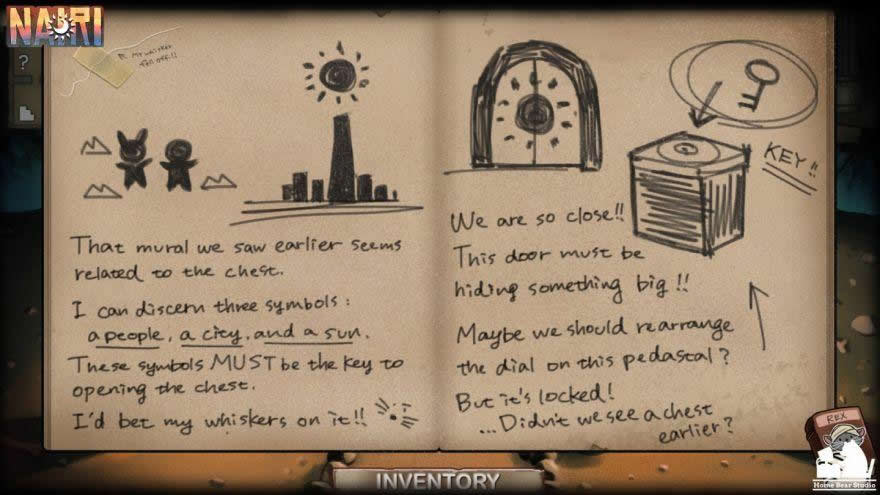 NAIRI
?
My whisker
fell off!!
That mural we saw earlier seems
related to the chest.
I can discern three symbols:
a people, a city, and a sun.
These symbols MUST be the key to
opening the chest.
I'd bet my whiskers on it!!
KEY!!
We are so close!!
This door must be
hiding something big!!
Maybe we should rearrange
the dial on this pedastal?
But it's locked!
...Didn't we see a chest
earlier?
REX
INVENTORY
Home Bear Studio